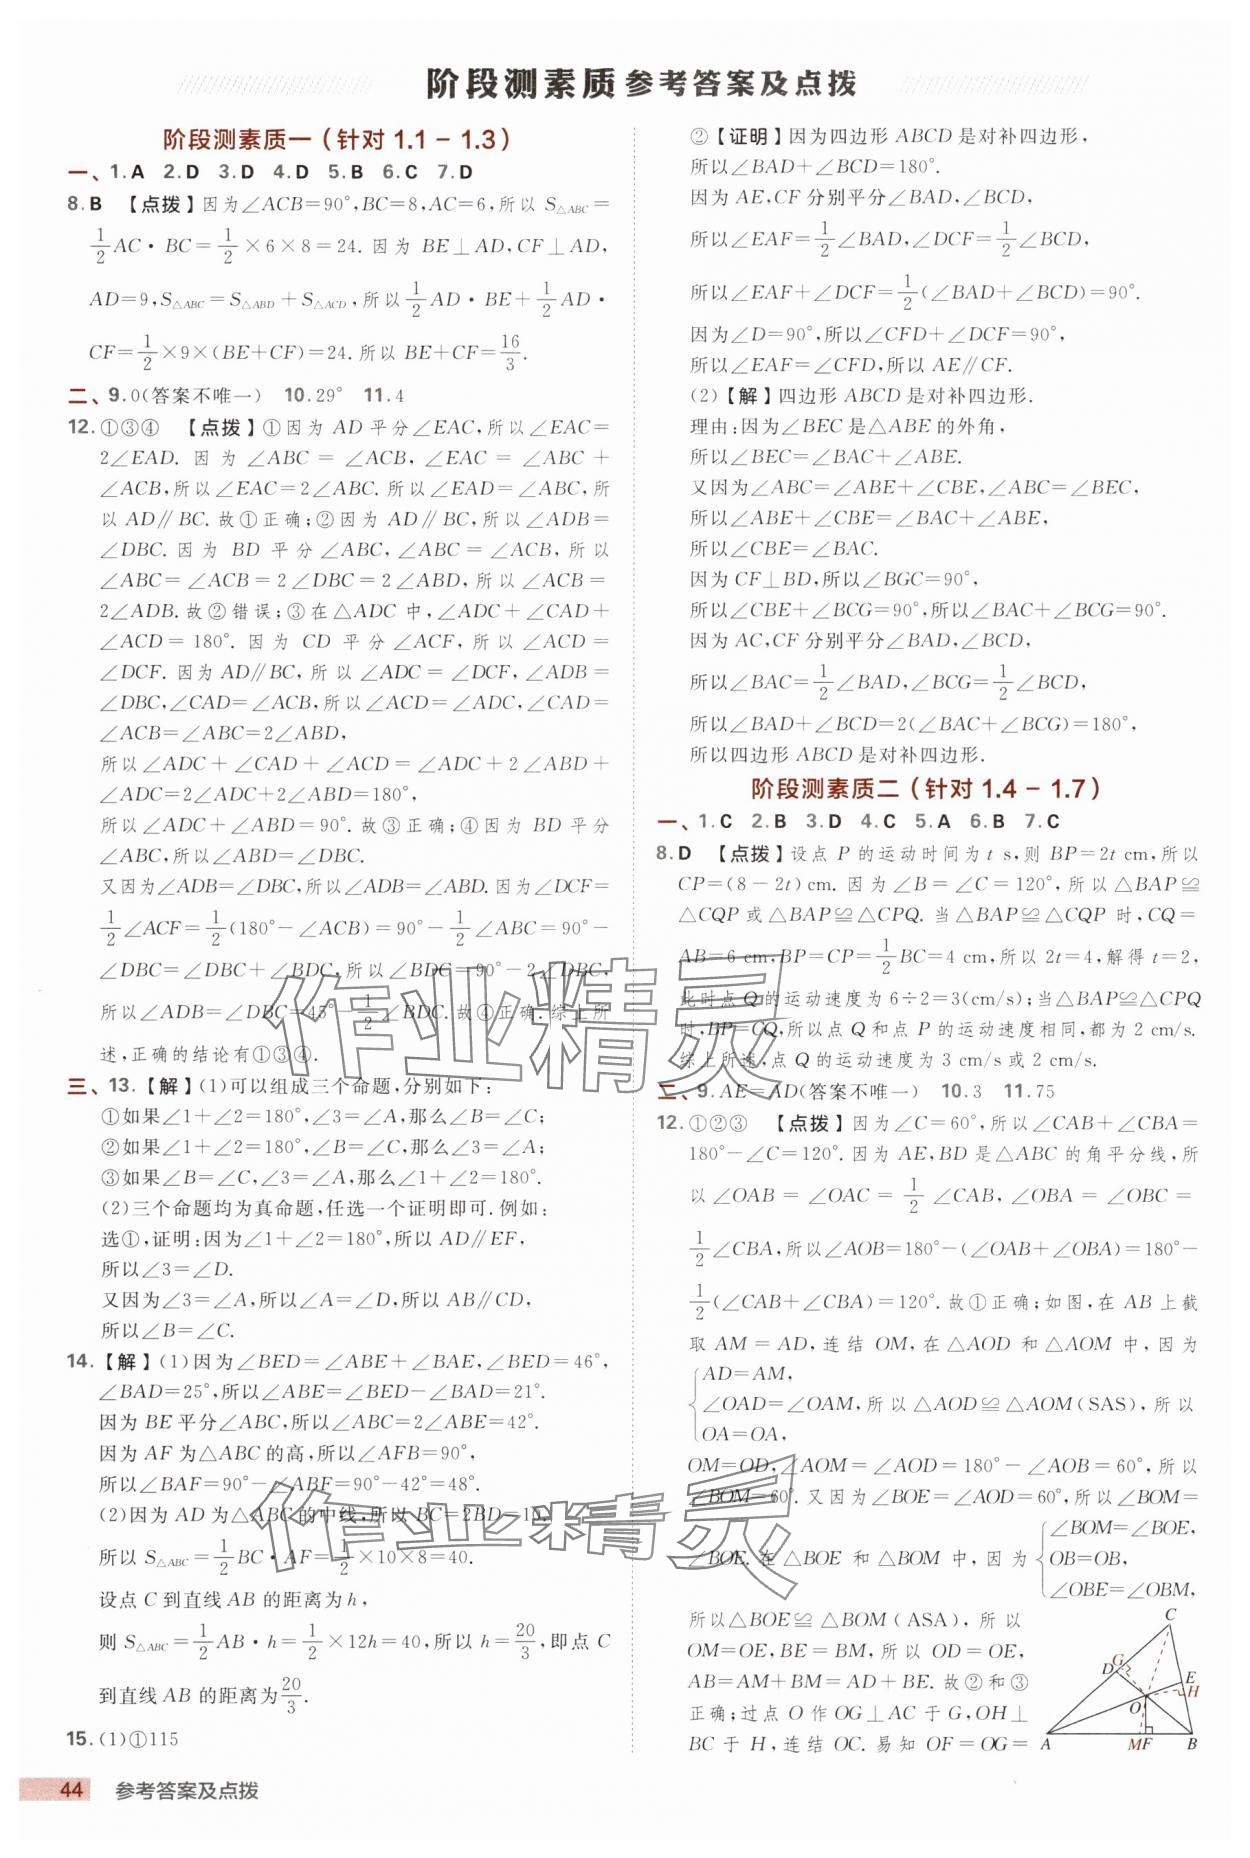 阶段测素质 参考答案及点拨
阶段测素质一（针对 1.1 - 1.3）
一、1.A 2.D 3.D 4.D 5.B 6.C 7.D
8.B 【点拨】因为∠ACB=90°,BC=8,AC=6,所以 S△ABC=
1/2 AC·BC=1/2×6×8=24. 因为 BE⊥AD,CF⊥AD,
AD=9,S△ABC=S△ABD+S△ACD,所以 1/2 AD·BE+1/2 AD·
CF=1/2×9×(BE+CF)=24. 所以 BE+CF=16/3.
二、9.0(答案不唯一) 10.29° 11.4
12.①③④ 【点拨】①因为 AD 平分∠EAC,所以∠EAC=
2∠EAD. 因为∠ABC=∠ACB,∠EAC=∠ABC+
∠ACB,所以∠EAC=2∠ABC. 所以∠EAD=∠ABC,所
以 AD∥BC. 故①正确;②因为 AD∥BC,所以∠ADB=
∠DBC. 因为 BD 平分∠ABC,∠ABC=∠ACB,所以
∠ABC=∠ACB=2∠DBC=2∠ABD,所以∠ACB=
2∠ADB. 故②错误;③在△ADC 中,∠ADC+∠CAD+
∠ACD=180°. 因为 CD 平分∠ACF,所以∠ACD=
∠DCF. 因为 AD∥BC,所以∠ADC=∠DCF,∠ADB=
∠DBC,∠CAD=∠ACB,所以∠ACD=∠ADC,∠CAD=
∠ACB=∠ABC=2∠ABD,
所以∠ADC+∠CAD+∠ACD=∠ADC+2∠ABD+
∠ADC=2∠ADC+2∠ABD=180°,
所以∠ADC+∠ABD=90°. 故③正确;④因为 BD 平分
∠ABC,所以∠ABD=∠DBC.
又因为∠ADB=∠DBC,所以∠ADB=∠ABD. 因为∠DCF=
1/2∠ACF=1/2(180°-∠ACB)=90°-1/2∠ABC=90°-
∠DBC=∠DBC+∠BDC,所以∠BDC=90°-2∠DBC,
所以∠ADB=∠DBC=45°-1/2∠BDC. 故④正确. 综上所
述,正确的结论有①③④.
三、13.【解】(1)可以组成三个命题,分别如下:
①如果∠1+∠2=180°,∠3=∠A,那么∠B=∠C;
②如果∠1+∠2=180°,∠B=∠C,那么∠3=∠A;
③如果∠B=∠C,∠3=∠A,那么∠1+∠2=180°.
(2)三个命题均为真命题,任选一个证明即可. 例如:
选①,证明:因为∠1+∠2=180°,所以 AD∥EF,
所以∠3=∠D.
又因为∠3=∠A,所以∠A=∠D,所以 AB∥CD,
所以∠B=∠C.
14.【解】(1)因为∠BED=∠ABE+∠BAE,∠BED=46°,
∠BAD=25°,所以∠ABE=∠BED-∠BAD=21°.
因为 BE 平分∠ABC,所以∠ABC=2∠ABE=42°.
因为 AF 为△ABC 的高,所以∠AFB=90°,
所以∠BAF=90°-∠ABF=90°-42°=48°.
(2)因为 AD 为△ABC 的中线,所以 BC=2BD=10.
所以 S△ABC=1/2 BC·AF=1/2×10×8=40.
设点 C 到直线 AB 的距离为 h,
则 S△ABC=1/2 AB·h=1/2×12h=40,所以 h=20/3,即点 C
到直线 AB 的距离为20/3.
15.(1)①115
44 参考答案及点拨
②【证明】因为四边形 ABCD 是对补四边形,
所以∠BAD+∠BCD=180°.
因为 AE,CF 分别平分∠BAD,∠BCD,
所以∠EAF=1/2∠BAD,∠DCF=1/2∠BCD,
所以∠EAF+∠DCF=1/2(∠BAD+∠BCD)=90°.
因为∠D=90°,所以∠CFD+∠DCF=90°.
所以∠EAF=∠CFD,所以 AE∥CF.
(2)【解】四边形 ABCD 是对补四边形.
理由:因为∠BEC 是△ABE 的外角,
所以∠BEC=∠BAC+∠ABE.
又因为∠ABC=∠ABE+∠CBE,∠ABC=∠BEC,
所以∠ABE+∠CBE=∠BAC+∠ABE,
所以∠CBE=∠BAC.
因为 CF⊥BD,所以∠BGC=90°,
所以∠CBE+∠BCG=90°,所以∠BAC+∠BCG=90°.
因为 AC,CF 分别平分∠BAD,∠BCD,
所以∠BAC=1/2∠BAD,∠BCG=1/2∠BCD,
所以∠BAD+∠BCD=2(∠BAC+∠BCG)=180°,
所以四边形 ABCD 是对补四边形.
阶段测素质二（针对 1.4 - 1.7）
一、1.C 2.B 3.D 4.C 5.A 6.B 7.C
8.D 【点拨】设点 P 的运动时间为 t s,则 BP=2t cm,所以
CP=(8-2t)cm. 因为∠B=∠C=120°,所以△BAP≌
△CQP 或△BAP≌△CPQ. 当△BAP≌△CQP 时,CQ=
AB=6 cm,BP=CP=1/2 BC=4 cm,所以 2t=4,解得 t=2,
此时点 Q 的运动速度为 6÷2=3(cm/s);当△BAP≌△CPQ
时,BP=CQ,所以点 Q 和点 P 的运动速度相同,都为 2 cm/s.
综上所述,点 Q 的运动速度为 3 cm/s 或 2 cm/s.
二、9.AE=AD(答案不唯一) 10.3 11.75
12.①②③ 【点拨】因为∠C=60°,所以∠CAB+∠CBA=
180°-∠C=120°. 因为 AE,BD 是△ABC 的角平分线,所
以∠OAB=∠OAC=1/2∠CAB,∠OBA=∠OBC=
1/2∠CBA,所以∠AOB=180°-(∠OAB+∠OBA)=180°-
1/2(∠CAB+∠CBA)=120°. 故①正确;如图,在 AB 上截
取 AM=AD,连结 OM,在△AOD 和△AOM 中,因为
AD=AM,
∠OAD=∠OAM,所以△AOD≌△AOM(SAS),所以
OA=OA,
OM=OD,∠AOM=∠AOD=180°-∠AOB=60°,所以
∠BOM=60°. 又因为∠BOE=∠AOD=60°,所以∠BOM=
∠BOE. 在△BOE 和△BOM 中,因为
∠BOM=∠BOE,
OB=OB,
∠OBE=∠OBM,
所以△BOE≌△BOM(ASA),所以
OM=OE,BE=BM,所以 OD=OE,
AB=AM+BM=AD+BE. 故②和③
正确;过点 O 作 OG⊥AC 于 G,OH⊥
BC 于 H,连结 OC. 易知 OF=OG=
C
G
D
E
H
O
A
M
F
B
作业精灵
作业精灵